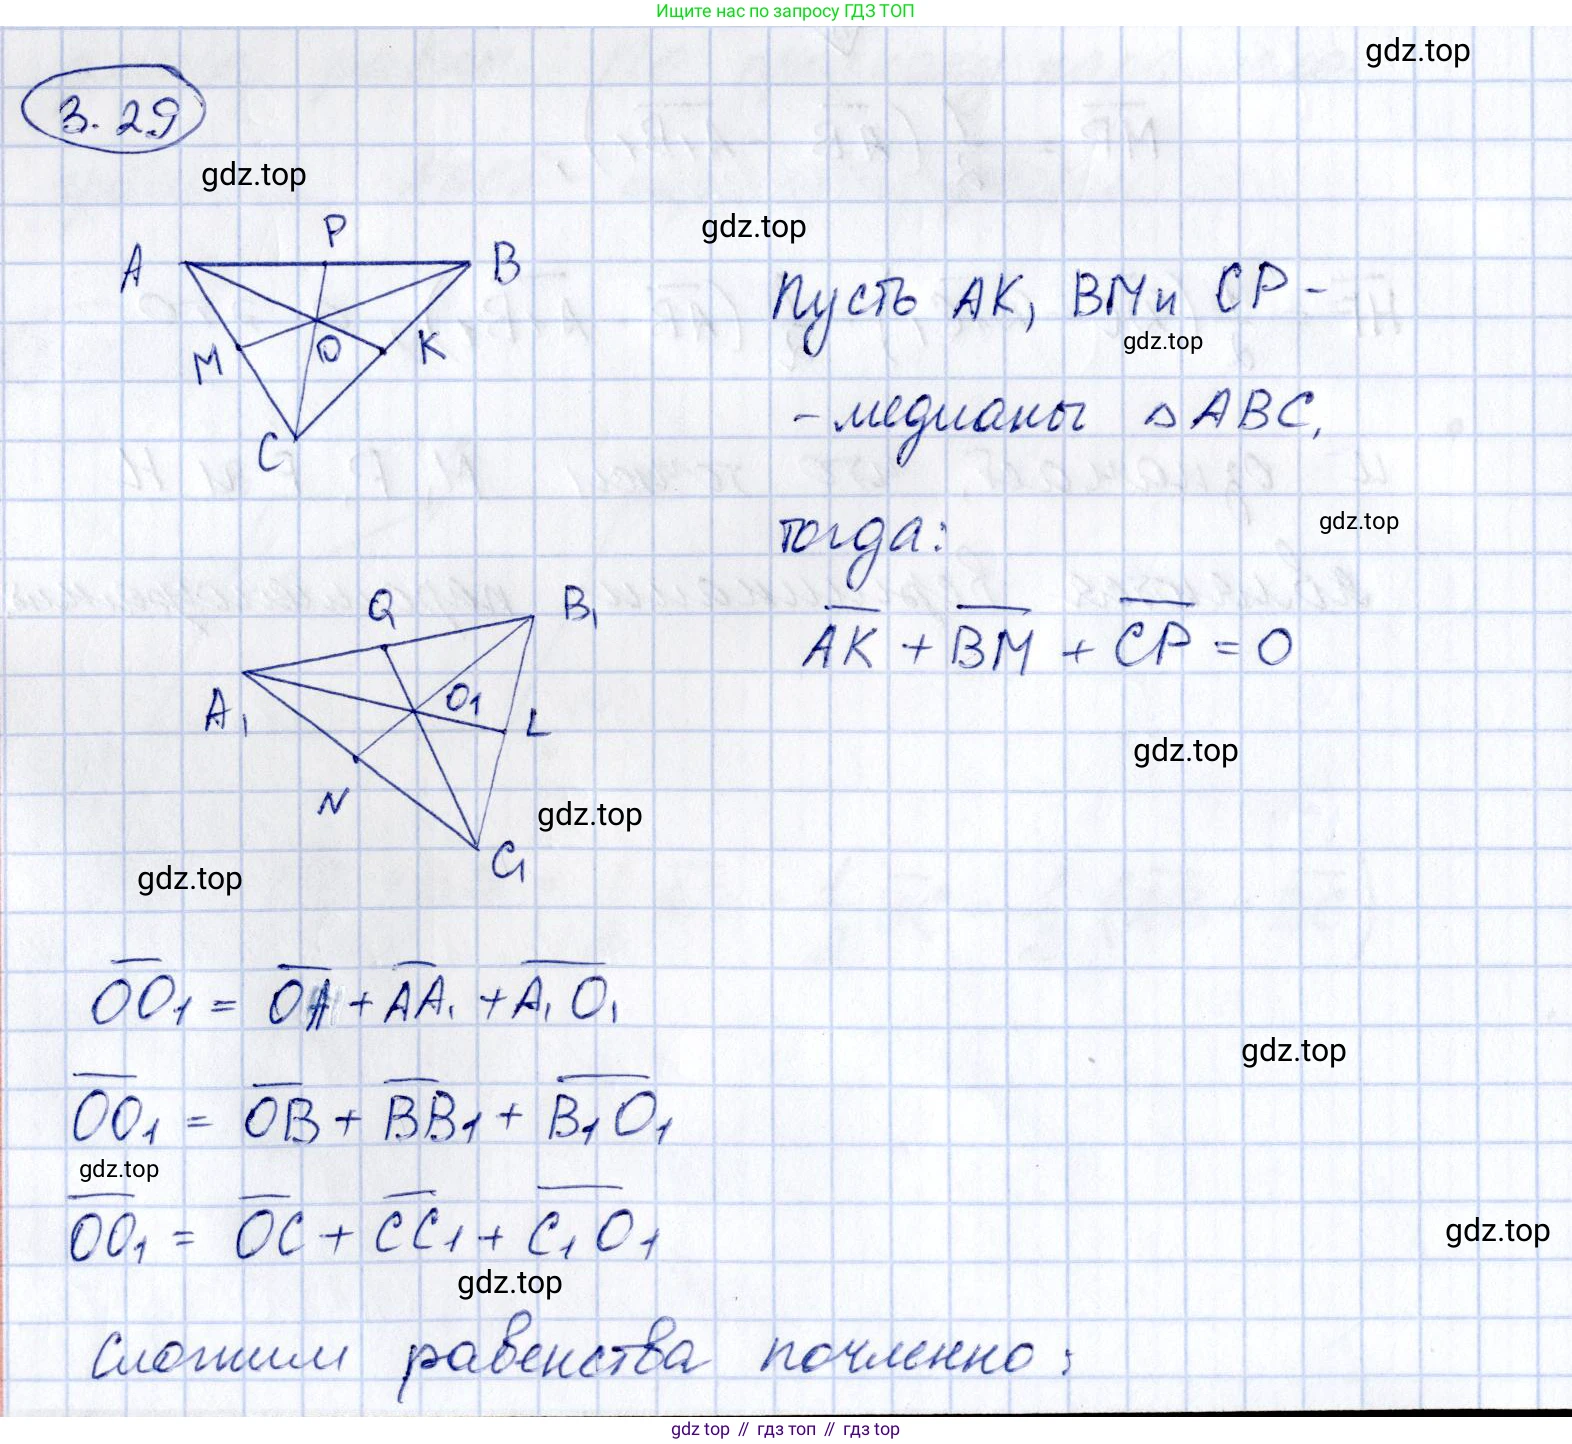 Ищите нас по запросу ГДЗ ТОП
gdz.top
3.29
gdz.top
P
gdz.top
A
B
Пусть AK, BM и CP -
M
O
K
gdz.top
- медианы △ABC,
C
тогда:
gdz.top
Q
B₁
A͞K͞ + B͞M͞ + C͞P͞ = 0
A₁
O₁
L
gdz.top
N
gdz.top
C₁
gdz.top
O͞O͞₁ = O͞A͞ + A͞A͞₁ + A͞₁O͞₁
gdz.top
O͞O͞₁ = O͞B͞ + B͞B͞₁ + B͞₁O͞₁
gdz.top
O͞O͞₁ = O͞C͞ + C͞C͞₁ + C͞₁O͞₁
gdz.top
gdz.top
Сложим равенства почленно:
gdz top // гдз топ // gdz top